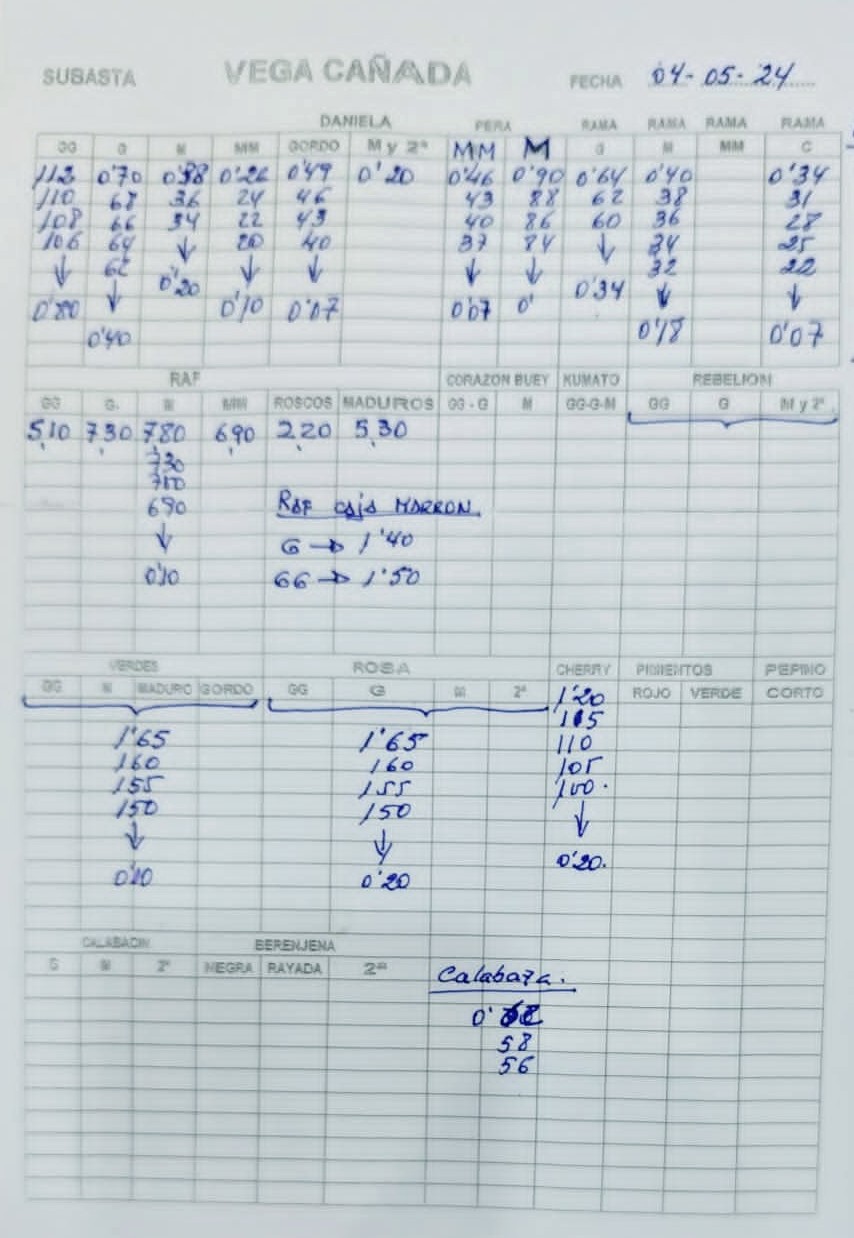 SUBASTA VEGA CAÑADA FECHA 04-05-24
DANIELA PERA RAMA RAMA RAMA RAMA
GG G M MM GORDO M y 2ª MM M G M MM C
112 0'70 0'38 0'26 0'49 0'20 0'46 0'90 0'64 0'40 0'34
110 68 36 24 46 43 88 62 38 31
108 66 34 22 43 40 86 60 36 28
106 64 ↓ 20 40 37 84 ↓ 34 25
↓ 62 0'20 ↓ ↓ ↓ ↓ 0'34 32 22
0'80 ↓ 0'10 0'07 0'07 0' ↓ ↓
0'40 0'18 0'07
RAF CORAZON BUEY KUMATO REBELION
GG G. M MM ROSCOS MADUROS GG-G M GG-G-M GG G M y 2ª
5,10 7,30 7,80 6,90 2,20 5,30
730
710
690 RAF caja MARRON
↓ G → 1'40
0'10 GG → 1'50
VERDES ROSA CHERRY PIMIENTOS PEPINO
GG M MADURO GORDO GG G M 2ª 1'20 ROJO VERDE CORTO
115
1'65 1'65 110
160 160 105
155 155 100.
150 150 ↓
↓ ↓ 0'20.
0'10 0'20
CALABACIN BERENJENA
G M 2ª NEGRA RAYADA 2ª Calabaza.
0'
58
56